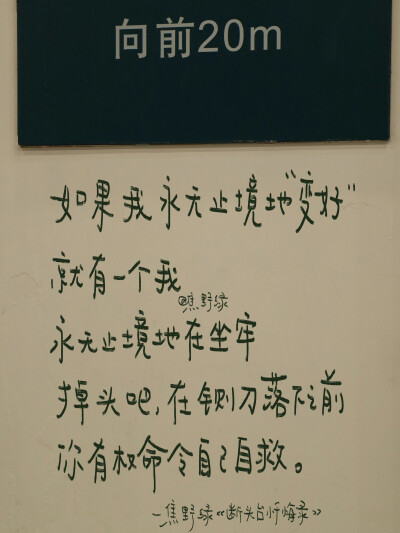 向前20m
如果我永无止境地"变好"
就有一个我
焦野绿
永无止境地在坐牢
掉头吧,在铡刀落下之前
你有权命令自己自救。
—焦野绿《断头台忏悔录》